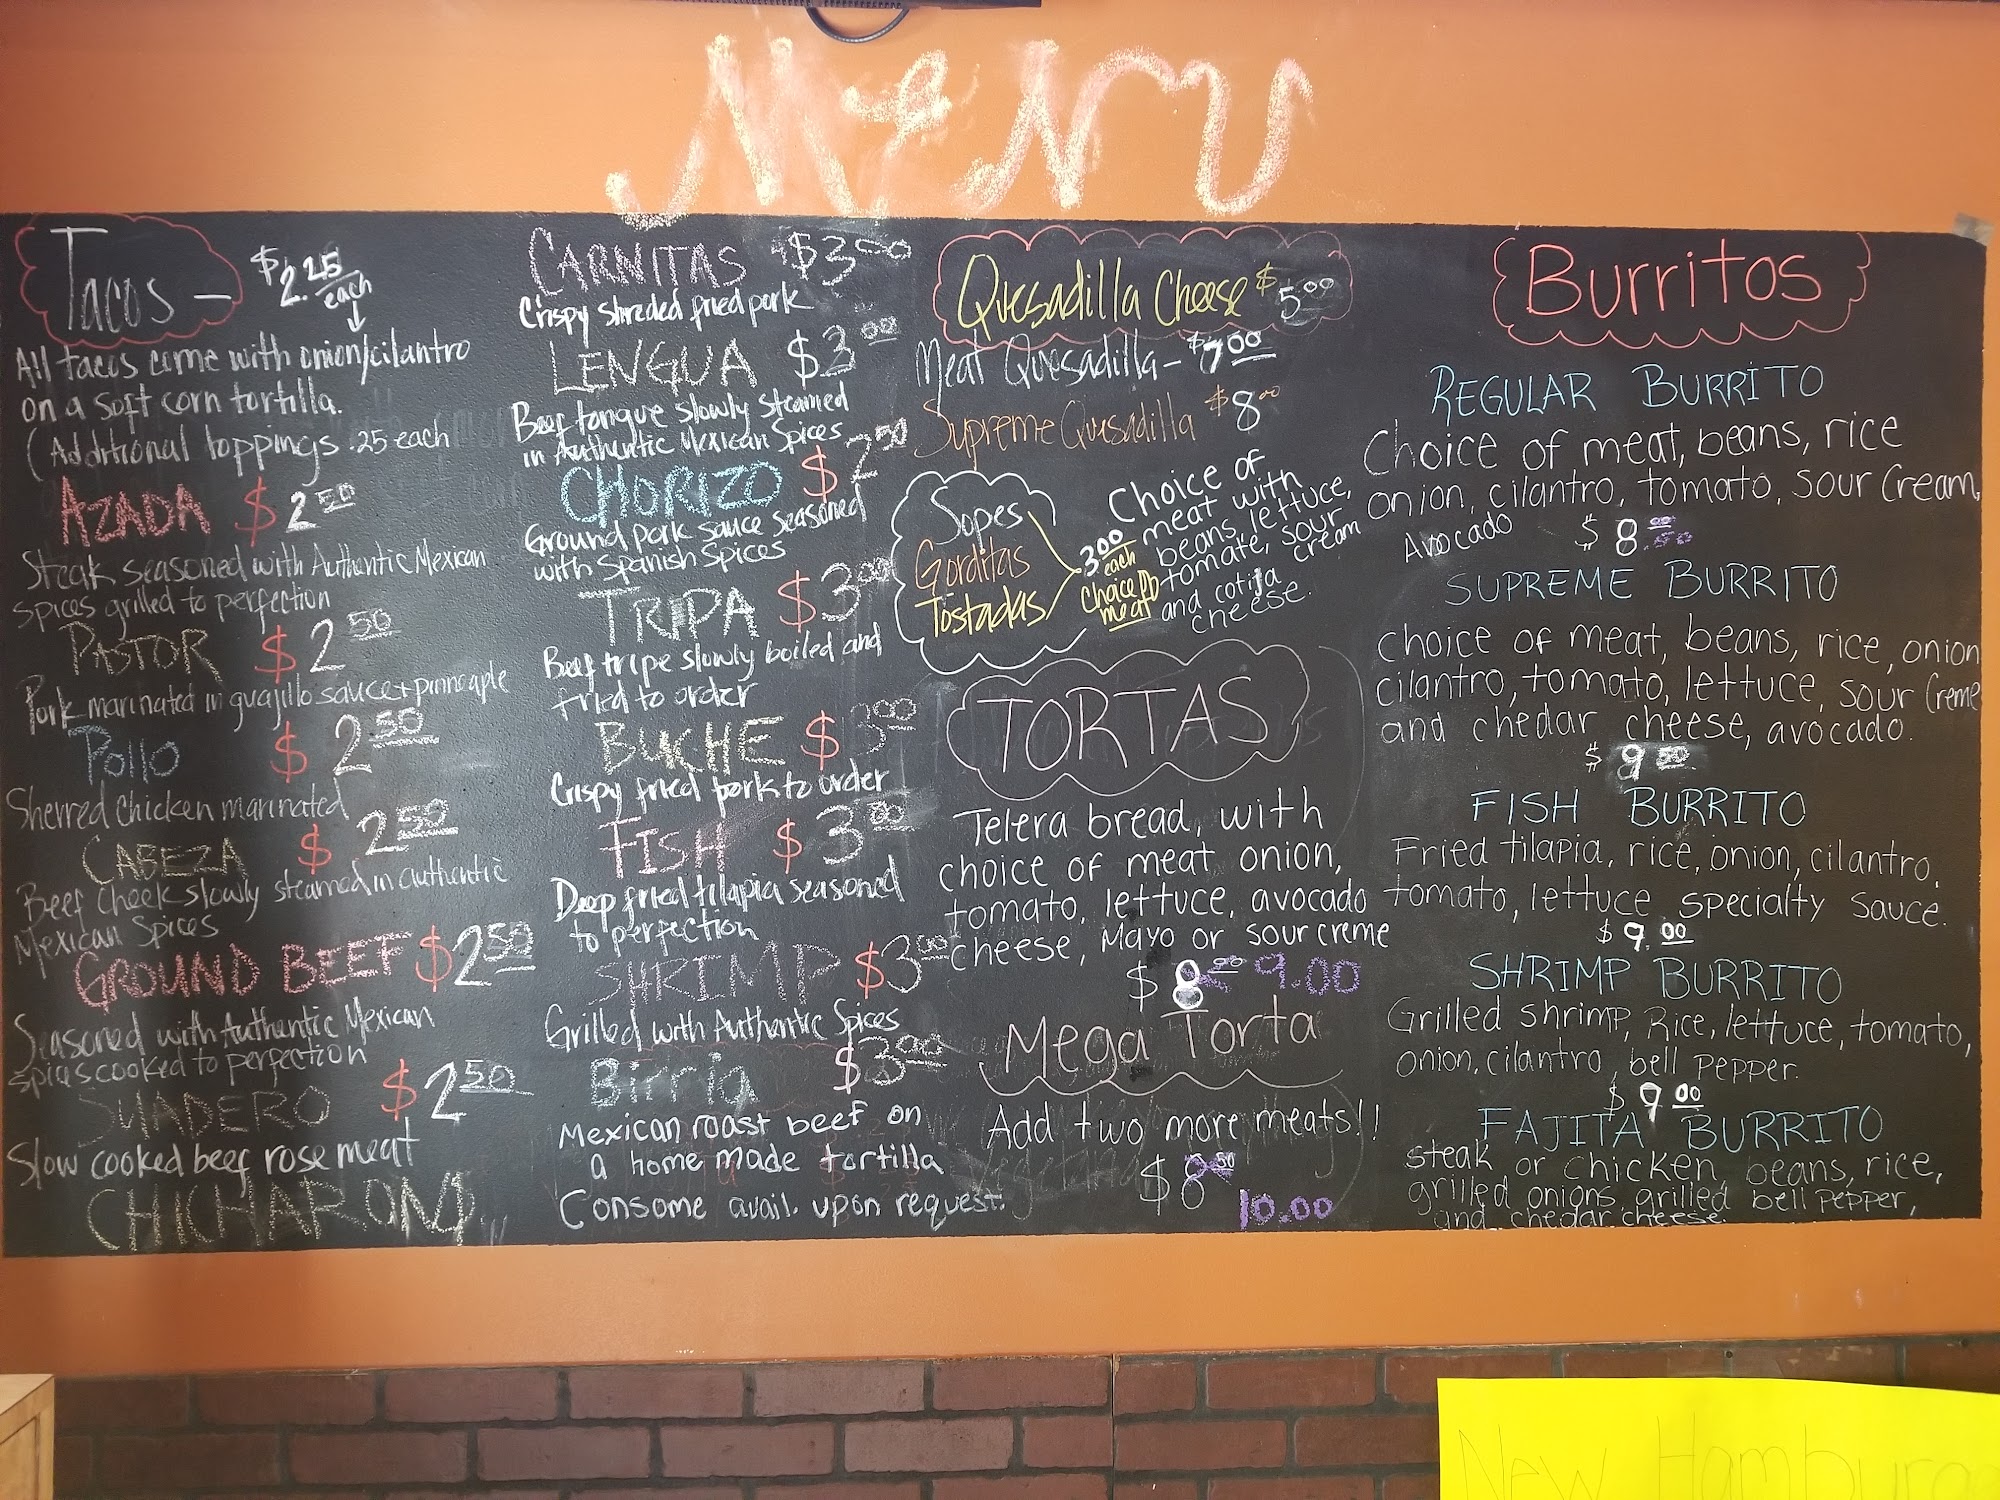 Menu
Tacos -
$2.25
each
All tacos come with onion/cilantro
on a soft corn tortilla.
(Additional toppings .25 each
AZADA $2.50
Steak seasoned with Authentic Mexican
spices grilled to perfection
PASTOR $2.50
Pork marinated in guajillo sauce + pinneaple
Pollo $2.50
Sherred chicken marinated
CABEZA $2.50
Beef cheek slowly steamed in authentic
Mexican Spices
GROUND BEEF $2.50
Seasoned with Authentic Mexican
spices cooked to perfection
SUADERO $2.50
Slow cooked beef rose meat
CHICHARON
CARNITAS $3.00
Crispy shreded fried pork
LENGUA $3.00
Beef tongue slowly steamed
in Authentic Mexican Spices
CHORIZO $2.50
Ground pork sauce seasoned
with Spanish Spices
TRIPA $3.00
Beef tripe slowly boiled and
fried to order
BUCHE $3.00
Crispy fried pork to order
FISH $3.00
Deep fried tilapia seasoned
to perfection
SHRIMP $3.00
Grilled with Authentic Spices
Birria $3.00
Mexican roast beef on
a home made tortilla
Consome avail. upon request.
Quesadilla Cheese $5.00
Meat Quesadilla - $7.00
Supreme Quesadilla $8.00
Sopes
Gorditas
Tostadas
3.00
each
meat
Choice of
meat with
beans, lettuce,
tomate, sour
cream
and cotija
cheese.
TORTAS
Telera bread, with
choice of meat onion,
tomato, lettuce, avocado
cheese, Mayo or sour creme
$8 9.00
Mega Torta
Add two more meats!!
$8.50
10.00
Burritos
REGULAR BURRITO
Choice of meat, beans, rice
onion, cilantro, tomato, sour cream,
Avocado $8.50
SUPREME BURRITO
choice of meat, beans, rice, onion
cilantro, tomato, lettuce, sour creme
and chedar cheese, avocado.
$9.50
FISH BURRITO
Fried tilapia, rice, onion, cilantro,
tomato, lettuce specialty sauce.
$9.00
SHRIMP BURRITO
Grilled shrimp, Rice, lettuce, tomato,
onion, cilantro, bell pepper.
$9.00
FAJITA BURRITO
steak or chicken, beans, rice,
grilled onions, grilled bell pepper,
and chedar cheese.
New Hamburge